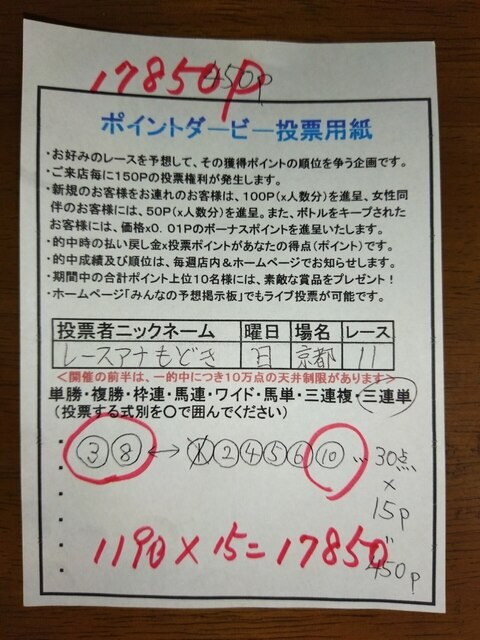 17850P
450P
ポイントダービー投票用紙
・お好みのレースを予想して、その獲得ポイントの順位を争う企画です。
・ご来店毎に150Pの投票権利が発生します。
・新規のお客様をお連れのお客様は、100P(x人数分)を進呈、女性同
伴のお客様には、50P(x人数分)を進呈。また、ボトルをキープされた
お客様には、価格x0.01Pのボーナスポイントを進呈いたします。
・的中時の払い戻し金x投票ポイントがあなたの得点(ポイント)です。
・的中成績及び順位は、毎週店内&ホームページでお知らせします。
・期間中の合計ポイント上位10名様には、素敵な賞品をプレゼント!
・ホームページ「みんなの予想掲示板」でもライブ投票が可能です。
投票者ニックネーム 曜日 場名 レース
レースアナもどき 日 京都 11
<開催の前半は、一的中につき10万点の天井制限があります>
単勝・複勝・枠連・馬連・ワイド・馬単・三連複・三連単
(投票する式別を○で囲んでください)
③⑧↔①②④⑤⑥⑩…30点
×
15P
〃
1190×15=17850
450P